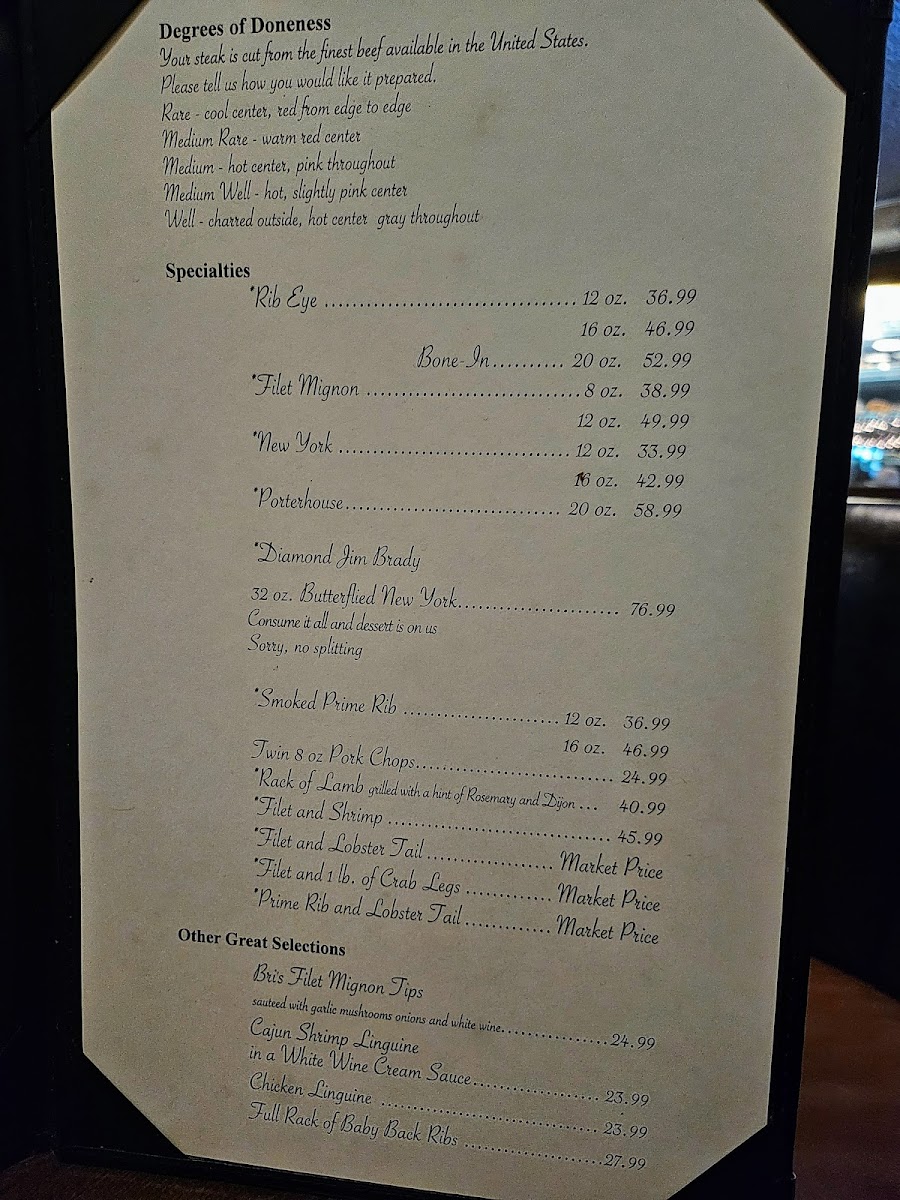 Degrees of Doneness
Your steak is cut from the finest beef available in the United States.
Please tell us how you would like it prepared.
Rare - cool center, red from edge to edge
Medium Rare - warm red center
Medium - hot center, pink throughout
Medium Well - hot, slightly pink center
Well - charred outside, hot center gray throughout
Specialties
*Rib Eye .................................... 12 oz. 36.99
16 oz. 46.99
Bone-In.......... 20 oz. 52.99
*Filet Mignon ............................... 8 oz. 38.99
12 oz. 49.99
*New York ................................. 12 oz. 33.99
16 oz. 42.99
*Porterhouse............................... 20 oz. 58.99
*Diamond Jim Brady
32 oz. Butterflied New York....................... 76.99
Consume it all and dessert is on us
Sorry, no splitting
*Smoked Prime Rib ...................... 12 oz. 36.99
16 oz. 46.99
Twin 8 oz Pork Chops............................ 24.99
*Rack of Lamb grilled with a hint of Rosemary and Dijon ... 40.99
*Filet and Shrimp ................................ 45.99
*Filet and Lobster Tail .................. Market Price
*Filet and 1 lb. of Crab Legs ............ Market Price
*Prime Rib and Lobster Tail ............. Market Price
Other Great Selections
Bri's Filet Mignon Tips
sauteed with garlic mushrooms onions and white wine................24.99
Cajun Shrimp Linguine
in a White Wine Cream Sauce.................. 23.99
Chicken Linguine ............................... 23.99
Full Rack of Baby Back Ribs ....................27.99